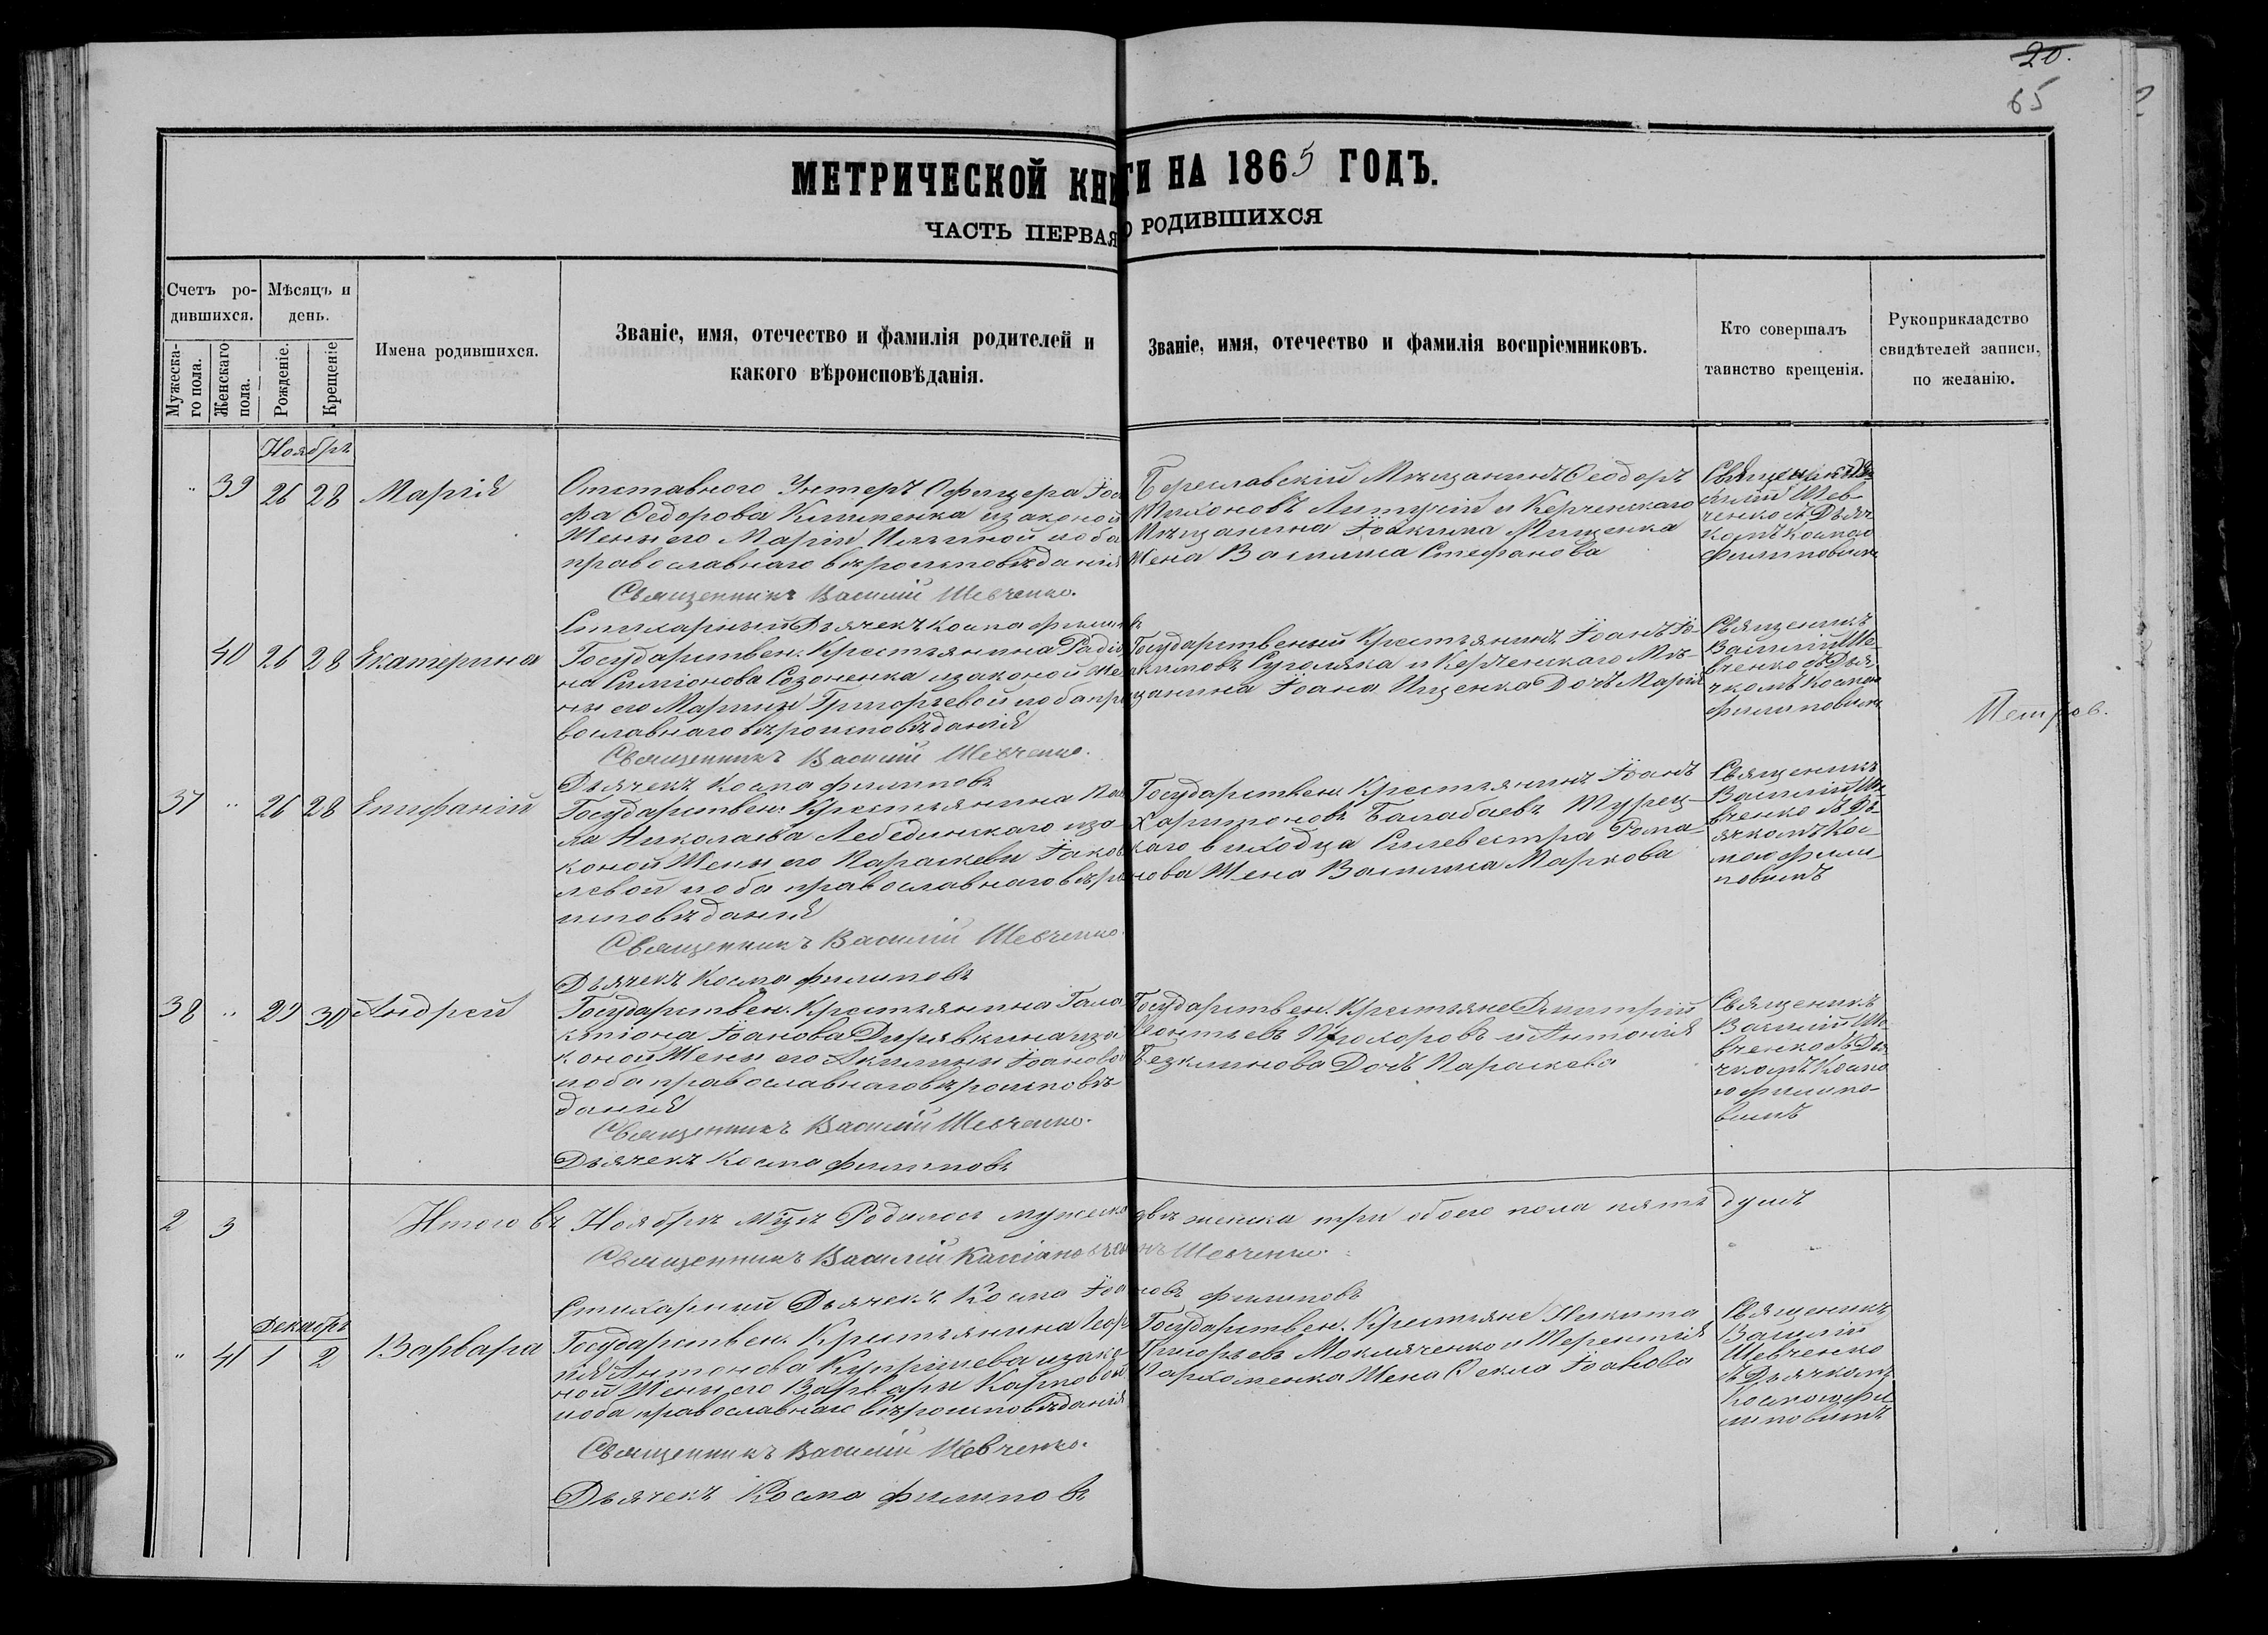 20.
65
МЕТРИЧЕСКОЙ КНИГИ НА 1865 ГОДЪ.
ЧАСТЬ ПЕРВАЯ О РОДИВШИХСЯ
Счетъ ро-
дившихся.
Мужеска-
го пола.
Женскаго
пола.
Мѣсяцъ и
день.
Рожденіе.
Крещеніе
Имена родившихся.
Званіе, имя, отечество и фамилія родителей и
какого вѣроисповѣданія.
Званіе, имя, отечество и фамилія воспріемниковъ.
Кто совершалъ
таинство крещенія.
Рукоприкладство
свидѣтелей записи,
по желанію.
Ноябрь
" 39 26 28 Марія
Отставного Унтеръ Офицера Іоси
фа Ѳедорова Клименка изаконой
Жены его Маріи Ильиной иоба
православнаго вѣроисповѣданія
Священникъ Василій Шевченко.
Стихарный Дьячекъ Косма Филиповъ
Бериславскій Мѣщанинъ Ѳеодоръ
Тихоновъ и Керченскаго
Мѣщанина Іоакима Мищенка
Жена Василиса Стефанова
Священикъ Ва
силій Шев
ченко съ Дьяч
комъ Космою
Филиповымъ
40 26 28 Екатерина
Государствен. Крестьянина Радіо
на Симіонова Созоненка изаконой Же
ны его Марины Григорьевой иоба пра
вославнаго вѣроисповѣданія
Священникъ Василій Шевченко.
Дьячекъ Косма Филиповъ
Государственый Крестьянинъ Іоанъ Іо-
акимовъ Суголяка и Керченскаго Мѣ-
щанина Іоана Ищенка Дочь Марія
Священикъ
Василій Ше
вченко съ Дья
чкомъ Космою
Филиповымъ
Петров.
37 " 26 28 Епифаній
Государствен. Крестьянина Пав
ла Николаева Лебединскаго иза
коной Жены его Параскевы Іаков
левой иоба православнаго вѣро
исповѣданія
Священникъ Василій Шевченко.
Дьячекъ Косма Филиповъ
Государствен. Крестьянинъ Іоанъ
Харитоновъ Балабаевъ Турец-
каго выходца Силевестра Рома-
нова Жена Василиса Маркова
Священикъ
Василій Ше
вченко съ Дь
ячкомъ Кос
мою Фили
повымъ
38 " 29 30 Андрей
Государствен. Крестьянина Гала
ктіона Іоанова Дирявкина иза
коной Жены его Акилины Іоановой
иоба православнаго вѣроисповѣ
данія
Священникъ Василій Шевченко.
Дьячекъ Косма Филиповъ
Государствен. Крестьяне Димитрій
Прохоровъ и Антонія
Безклинова Дочь Параскева
Священикъ
Василій Ше
вченко съ Дья
чкомъ Космо
ю Филипо-
вымъ
2 3 Итого въ Ноябрѣ мѣцѣ Родилось мужеска два женска три обоего пола пять душъ
Священникъ Василій Кассіановъ сынъ Шевченко.
Стихарный Дьячекъ Косма Іоановъ Филиповъ
Декабрь
" 41 1 2 Варвара
Государствен. Крестьянина Геор
гія Антонова Купріщева изако
ной Жены его Варвары Карповой
иоба православнаго вѣроисповѣданія
Священникъ Василій Шевченко.
Дьячекъ Косма Филиповъ
Государствен. Крестьяне Никита
Григорьевъ Мокляченко и Терентія
Пархоменка Жена Ѳекла Іоанова
Священикъ
Василій
Шевченко
съ Дьячкомъ
Космою Фи
липовымъ